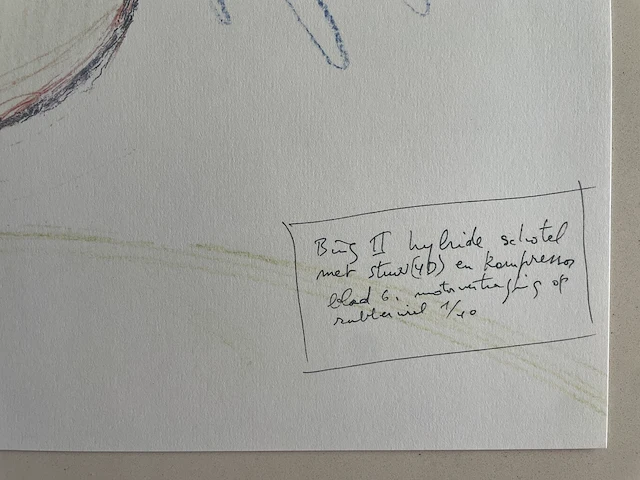 Bing II hybride schotel
met stuur(4D) en kompressor
blad 6. motorvertraging op
rubberwiel 1/10